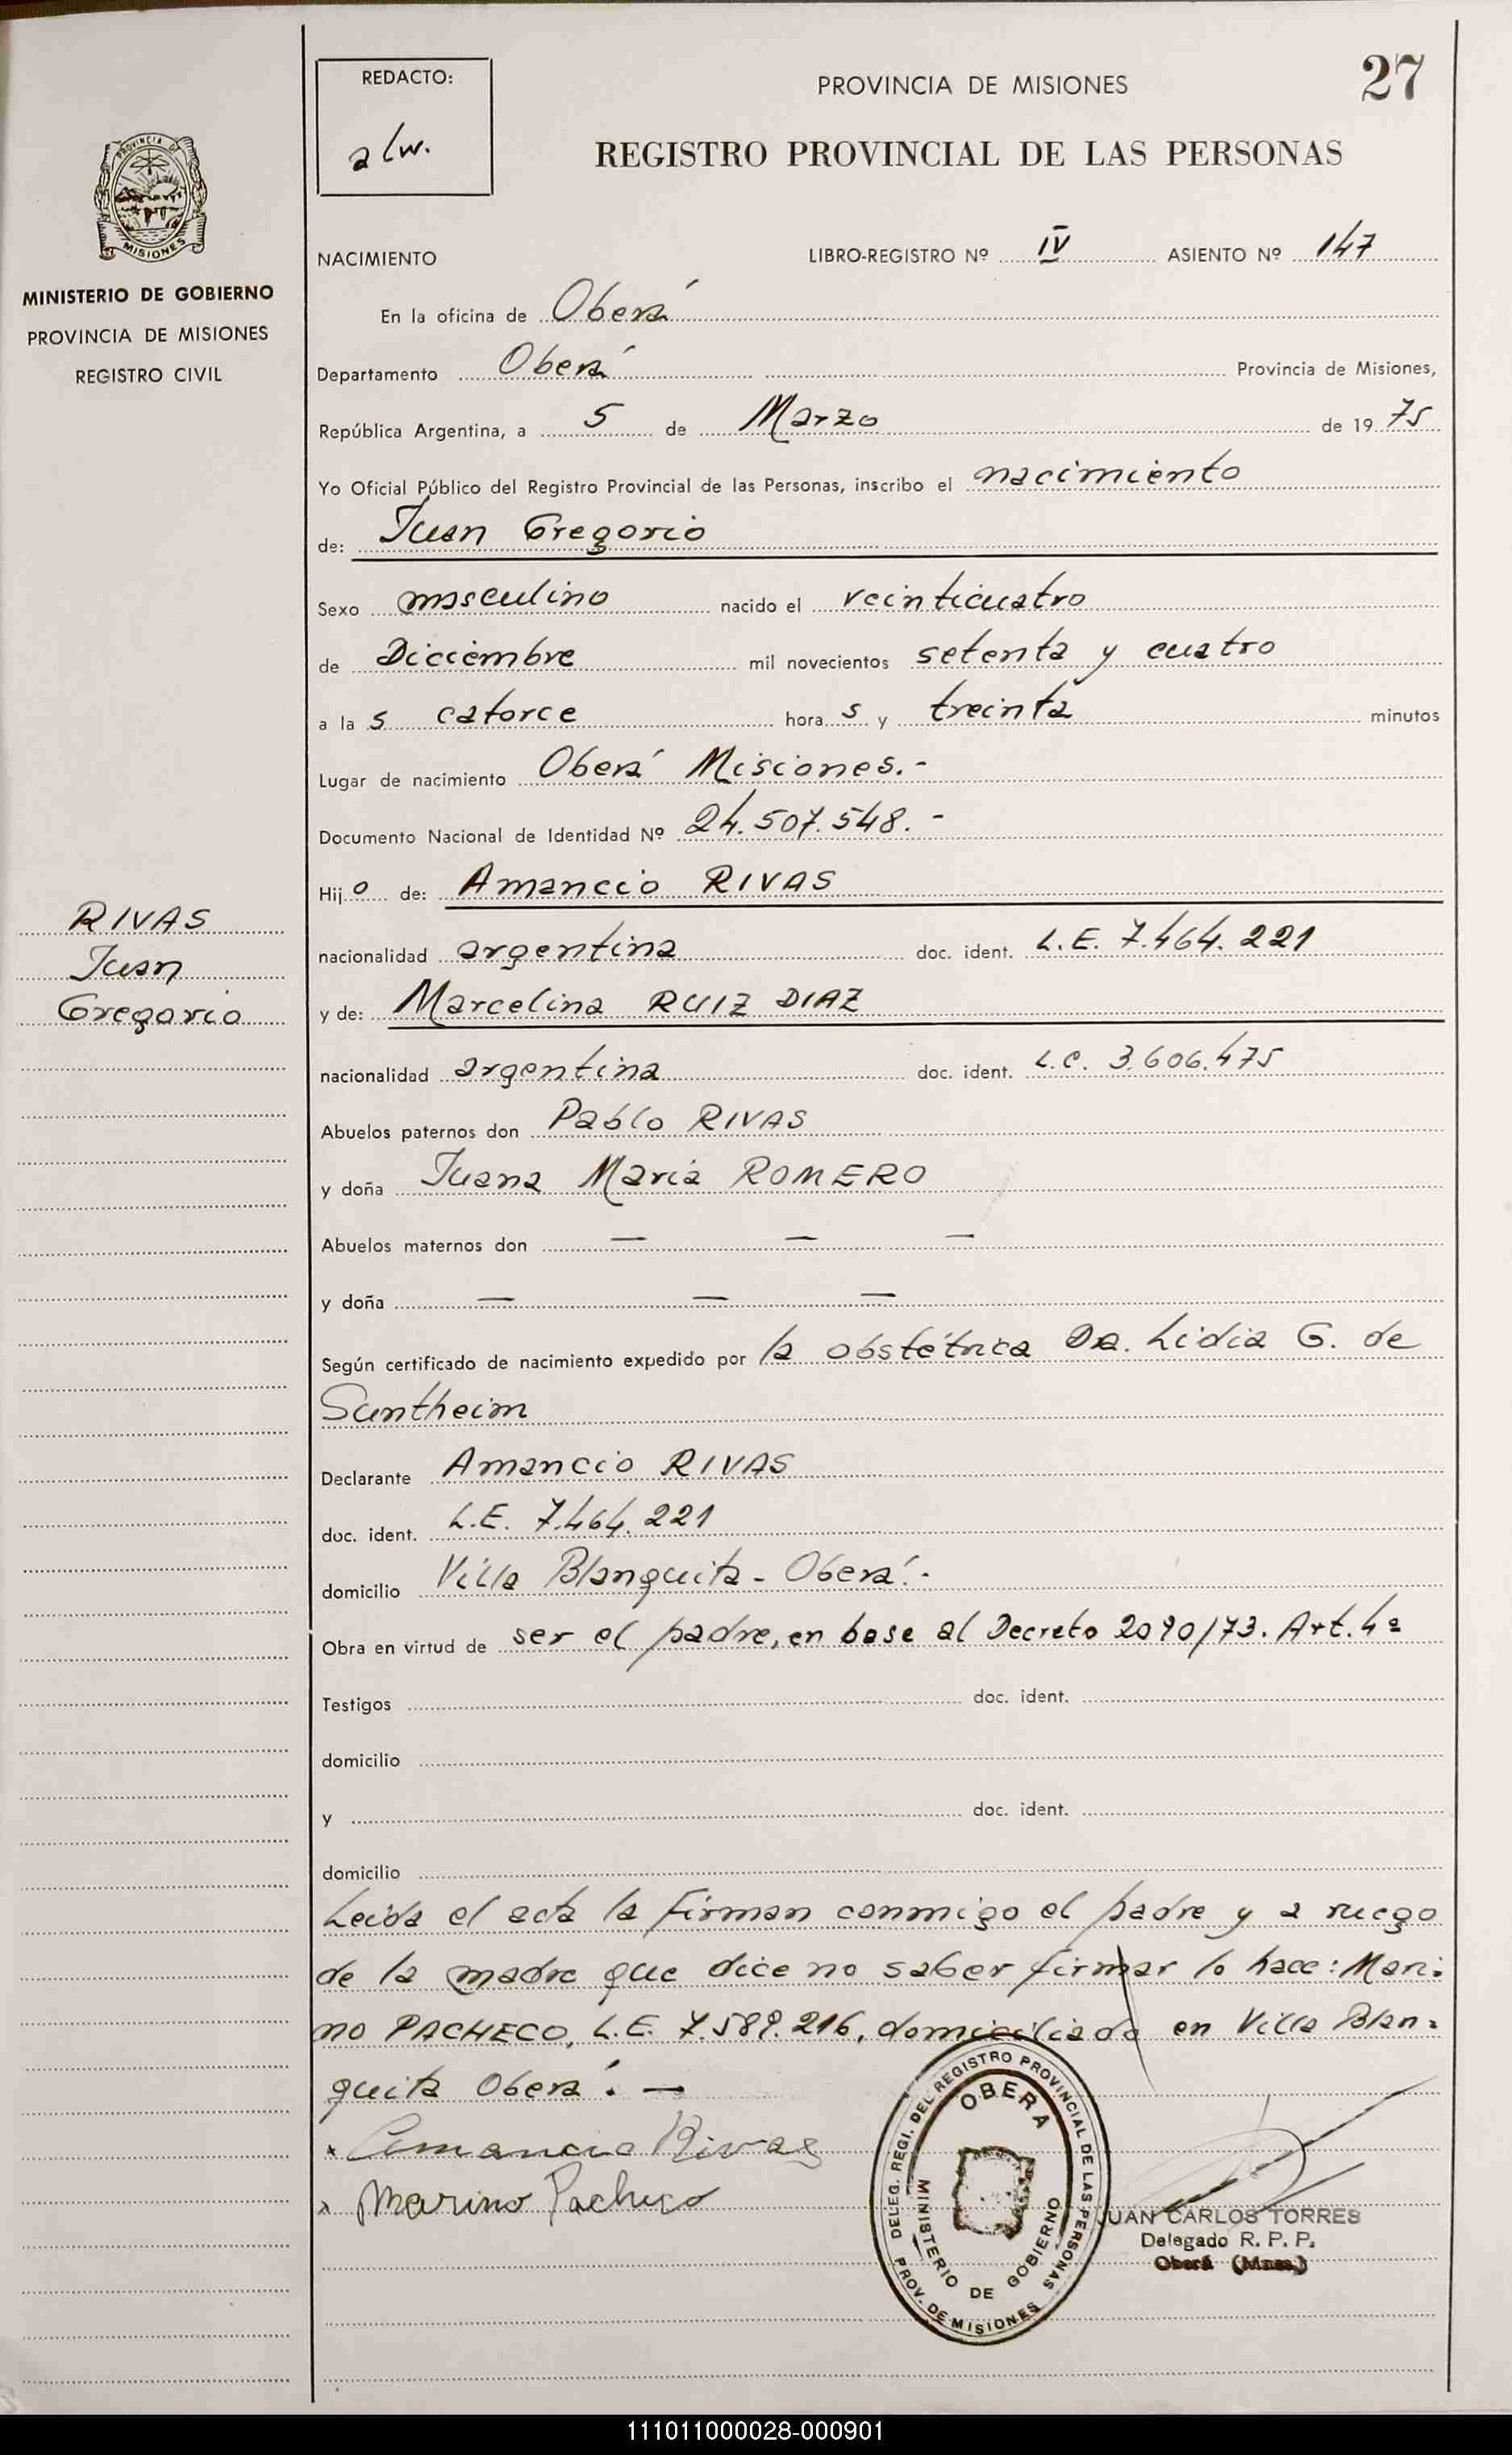 27
REDACTO:
alw.
PROVINCIA DE MISIONES
REGISTRO PROVINCIAL DE LAS PERSONAS
PROVINCIA DE
MISIONES
MINISTERIO DE GOBIERNO
PROVINCIA DE MISIONES
REGISTRO CIVIL
NACIMIENTO LIBRO-REGISTRO Nº IV ASIENTO Nº 147
En la oficina de Oberá
Departamento Oberá Provincia de Misiones,
República Argentina, a 5 de Marzo de 1975
Yo Oficial Público del Registro Provincial de las Personas, inscribo el nacimiento
de: Juan Gregorio
Sexo masculino nacido el veinticuatro
de Diciembre mil novecientos setenta y cuatro
a la s catorce hora s y treinta minutos
Lugar de nacimiento Oberá Misiones.-
Documento Nacional de Identidad Nº 24.507.548.-
Hijo de: Amancio RIVAS
RIVAS
Juan
Gregorio
nacionalidad argentina doc. ident. L.E. 7.464.221
y de: Marcelina RUIZ DIAZ
nacionalidad argentina doc. ident. L.C. 3.606.475
Abuelos paternos don Pablo RIVAS
y doña Juana Maria ROMERO
Abuelos maternos don — — —
y doña — — —
Según certificado de nacimiento expedido por la obstétrica Da. Lidia G. de
Suntheim
Declarante Amancio RIVAS
doc. ident. L.E. 7.464.221
domicilio Villa Blanquita - Oberá.-
Obra en virtud de ser el padre, en base al Decreto 2090/73. Art. 4º
Testigos doc. ident.
domicilio
y doc. ident.
domicilio
Leida el acta la firman conmigo el padre y a ruego
de la madre que dice no saber firmar lo hace: Mari=
no PACHECO, L.E. 7.589.216, domiciliado en Villa Blan=
quita Oberá. —
Amancio Rivas
Marino Pacheco
DELEG. REGI. DEL REGISTRO PROVINCIAL DE LAS PERSONAS
OBERA
MINISTERIO DE GOBIERNO
PROV. DE MISIONES
JUAN CARLOS TORRES
Delegado R. P. P.
Oberá (Mnes.)
111011000028-000901